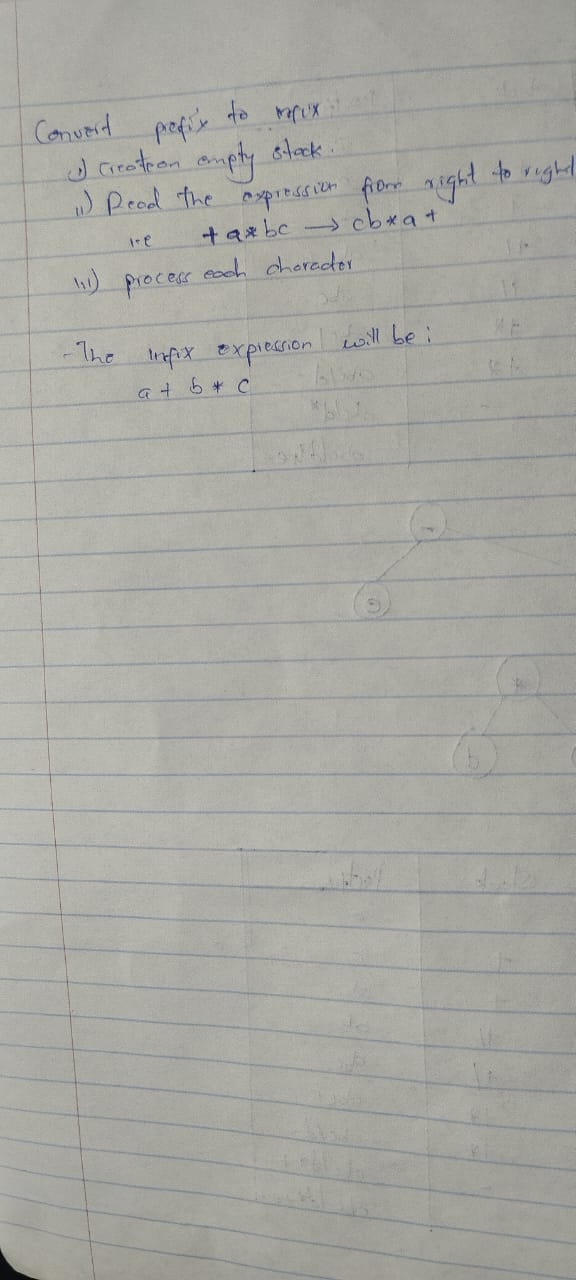 Convert prefix to infix
i) Create an empty stack.
ii) Read the expression from right to right
i.e +a*bc → cb*a+
iii) process each character
- The Infix expression will be :
a + b * c